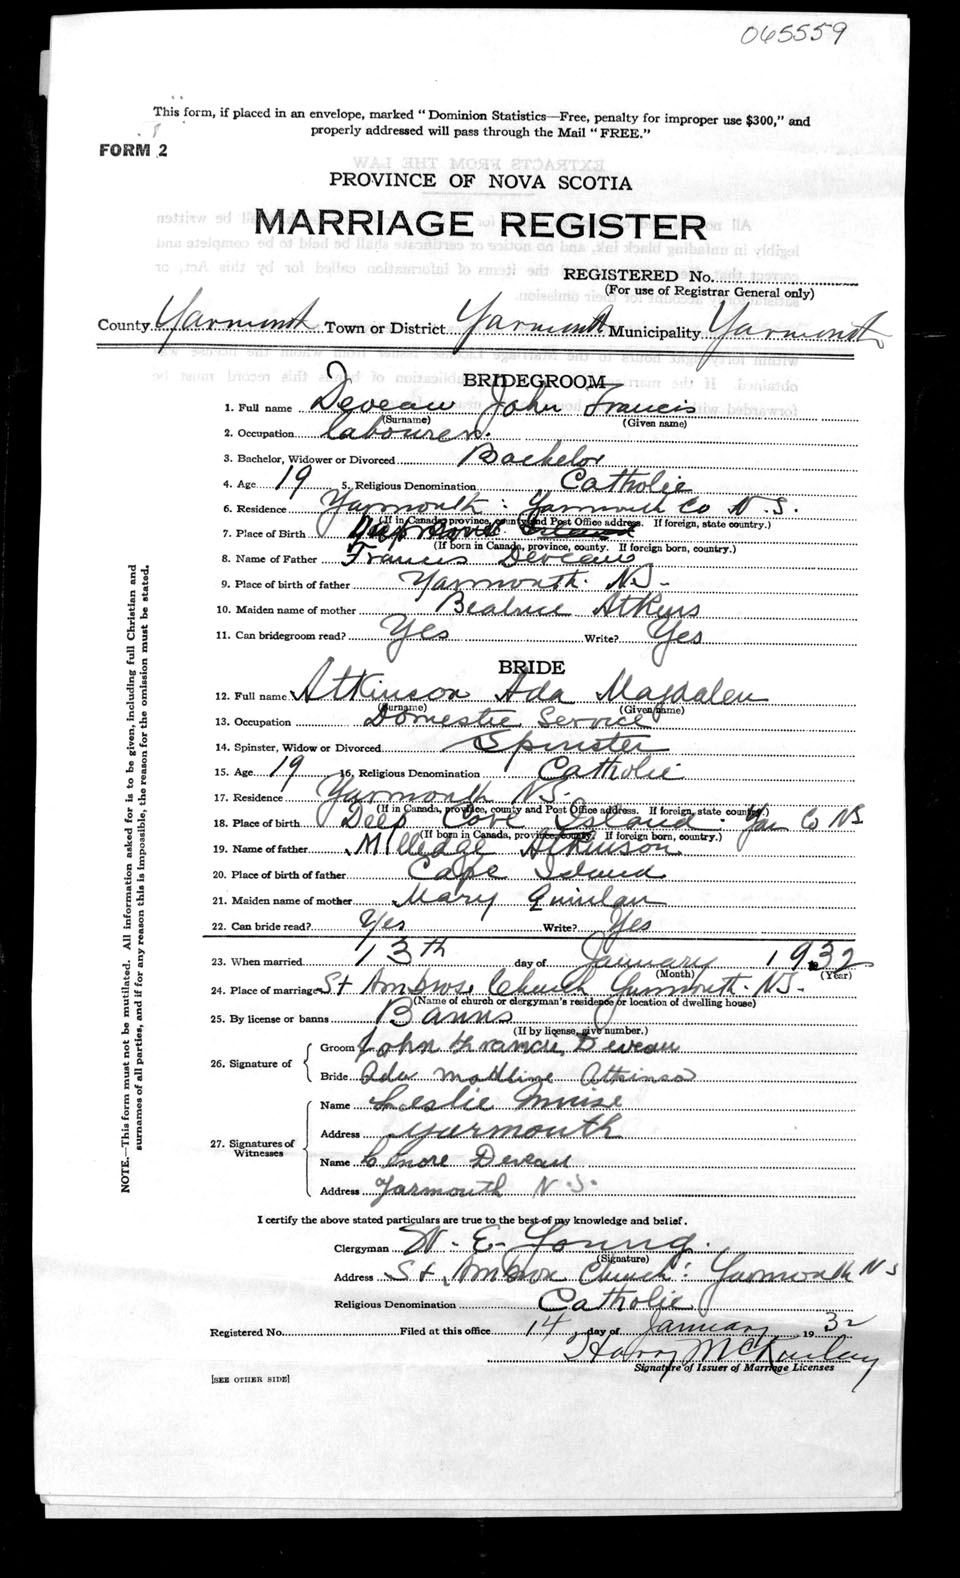 065559
This form, if placed in an envelope, marked "Dominion Statistics—Free, penalty for improper use $300," and
properly addressed will pass through the Mail "FREE."
FORM 2
PROVINCE OF NOVA SCOTIA
MARRIAGE REGISTER
REGISTERED No.
(For use of Registrar General only)
County Yarmouth Town or District Yarmouth Municipality Yarmouth
BRIDEGROOM
1. Full name Deveau John Francis
(Surname) (Given name)
2. Occupation labourer.
3. Bachelor, Widower or Divorced Bachelor
4. Age 19 5. Religious Denomination Catholic
6. Residence Yarmouth: Yarmouth Co N.S.
(If in Canada, province, county and Post Office address. If foreign, state country.)
7. Place of Birth
(If born in Canada, province, county. If foreign born, country.)
8. Name of Father Francis Deveau
9. Place of birth of father Yarmouth. N.S-
10. Maiden name of mother Beatrice Atkins
11. Can bridegroom read? Yes Write? Yes
BRIDE
12. Full name Atkinson Ada Magdalen
(Surname) (Given name)
13. Occupation Domestic Service
14. Spinster, Widow or Divorced Spinster
15. Age 19 16. Religious Denomination Catholic
17. Residence Yarmouth N.S.
(If in Canada, province, county and Post Office address. If foreign, state country.)
18. Place of birth Deep Cove Island. Yar Co NS
(If born in Canada, province, county. If foreign born, country.)
19. Name of father Milledge Atkinson
20. Place of birth of father Cape Island
21. Maiden name of mother Mary Quinlan
22. Can bride read? Yes Write? Yes
23. When married 13th day of January 1932
(Month) (Year)
24. Place of marriage St Ambrose Church Yarmouth. N.S-
(Name of church or clergyman's residence or location of dwelling house)
25. By license or banns Banns
(If by license, give number.)
26. Signature of Groom John Francis Deveau
Bride Ada Madline Atkinson
27. Signatures of Witnesses Name Leslie Muise
Address Yarmouth
Name Elnore Deveau
Address Yarmouth N.S.
I certify the above stated particulars are true to the best of my knowledge and belief.
Clergyman W. E. Young.
(Signature)
Address St Ambrose Church: Yarmouth NS
Religious Denomination Catholic
Registered No. Filed at this office 14 day of January 1932
Harry McKinlay
Signature of Issuer of Marriage Licenses
[SEE OTHER SIDE]
NOTE.—This form must not be mutilated. All information asked for is to be given, including full Christian and
surnames of all parties, and if for any reason this is impossible, the reason for the omission must be stated.